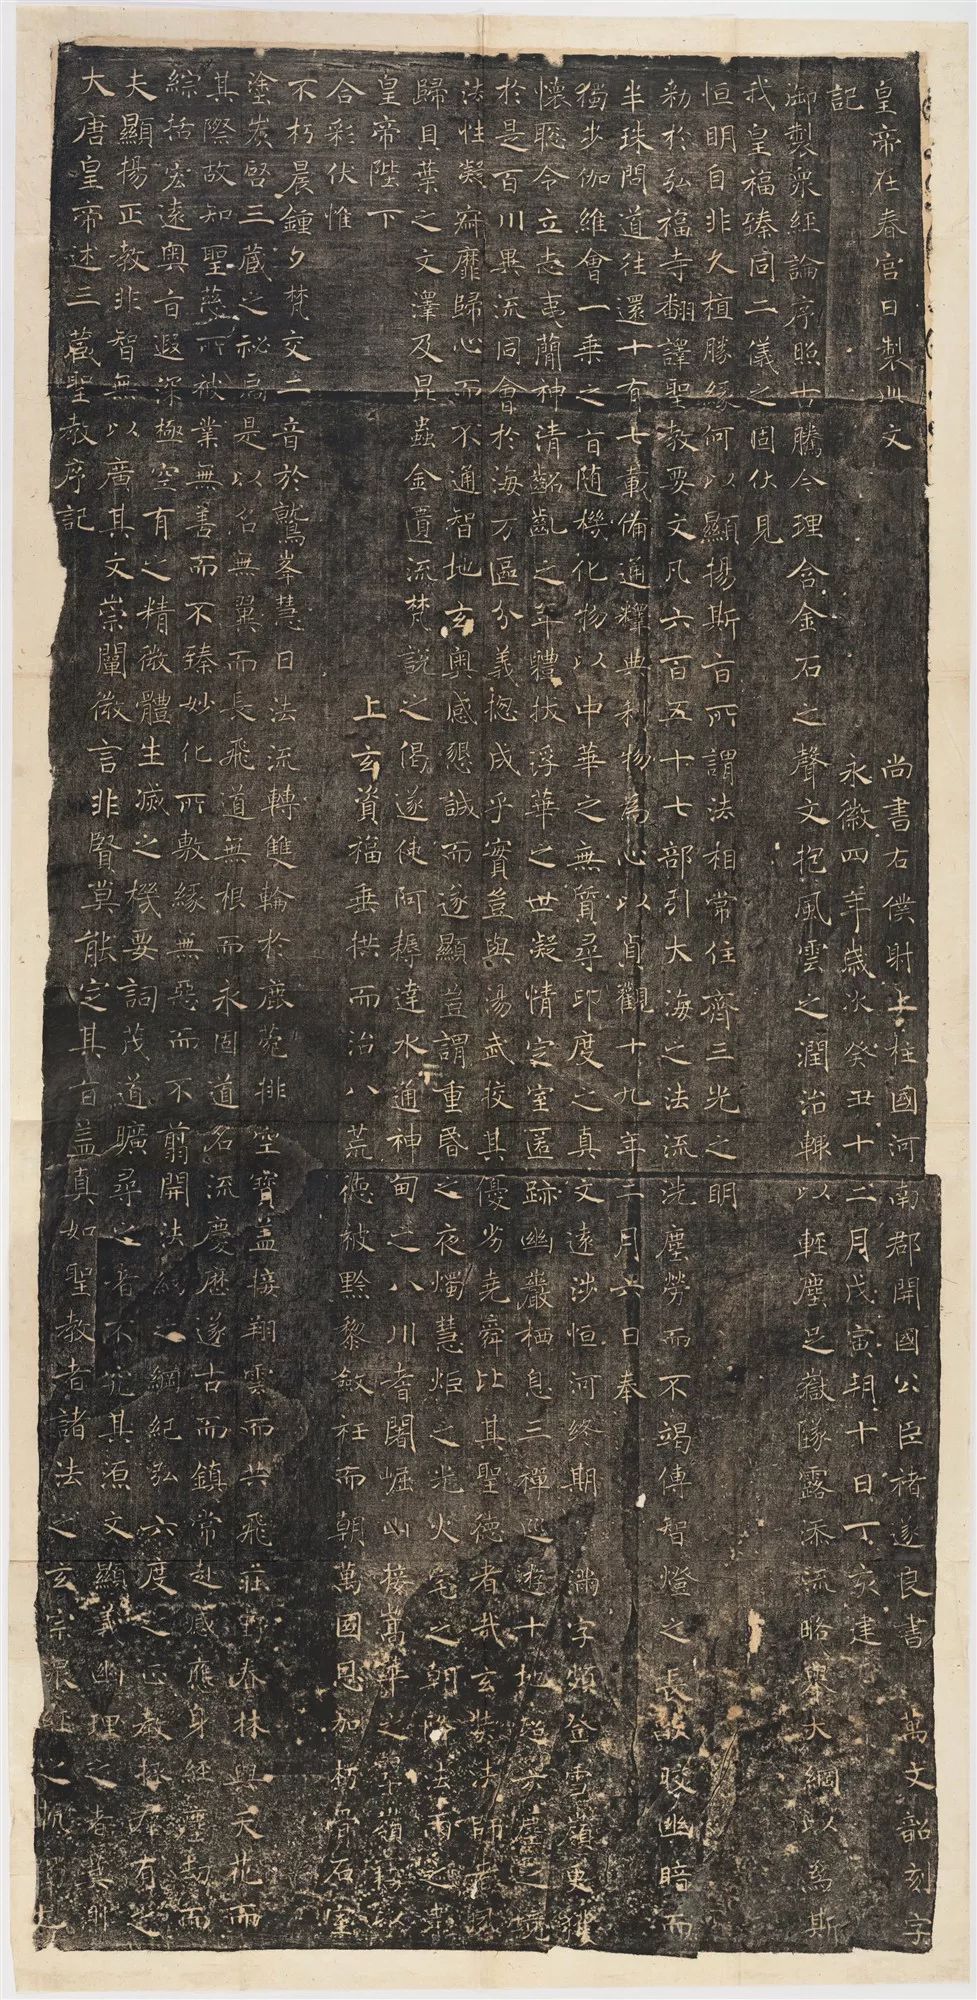 大唐皇帝述三藏聖教序記
夫顯揚正教非智無以廣其文崇闡微言非賢莫能定其旨盖真如聖教者諸法之玄宗眾經之軌躅也
綜括宏遠奧旨遐深極空有之精微體生滅之機要詞茂道曠尋之者不究其源文顯義幽理之者莫測
其際故知聖慈所被業無善而不臻妙化所敷緣無惡而不翦開法網之綱紀弘六度之正教拯群有之
塗炭啓三藏之秘扃是以名無翼而長飛道無根而永固道名流慶歷遂古而鎮常赴感應身經塵劫而
不朽晨鍾夕梵交二音於鷲峯慧日法流轉雙輪於鹿菀排空寶盖接翔雲而共飛莊野春林與天花而
合彩伏惟
皇帝陛下上玄資福垂拱而治八荒德被黔黎斂衽而朝萬國恩加朽骨石室
歸貝葉之文澤及昆蟲金匱流梵說之偈遂使阿耨達水通神甸之八川耆闍崛山接嵩華之翠嶺竊以
法性凝寂靡歸心而不通智地玄奧感懇誠而遂顯豈謂重昏之夜燭慧炬之光火宅之朝降法雨之澤
於是百川異流同會於海万區分義揔成乎實豈與湯武挍其優劣堯舜比其聖德者哉玄奘法師者夙
懷聡令立志夷簡神清齠齔之年體拔浮華之世凝情定室匿跡幽巖栖息三禪巡遊十地超六塵之境
獨步伽維會一乘之旨隨機化物以中華之無質尋印度之真文遠涉恒河終期滿字頻登雪嶺更獲
半珠問道往還十有七載備通釋典利物為心以貞觀十九年二月六日奉
勑於弘福寺翻譯聖教要文凡六百五十七部引大海之法流洗塵勞而不竭傳智燈之長焰皎幽暗而
恒明自非久植勝緣何以顯揚斯旨所謂法相常住齊三光之明
我皇福臻同二儀之固伏見
御製眾經論序照古騰今理含金石之聲文抱風雲之潤治輒以輕塵足嶽墜露添流略舉大綱以為斯
記
永徽四年歲次癸丑十二月戊寅朔十日丁亥建
皇帝在春宮日製此文
尚書右僕射上柱國河南郡開國公臣褚遂良書
萬文韶刻字